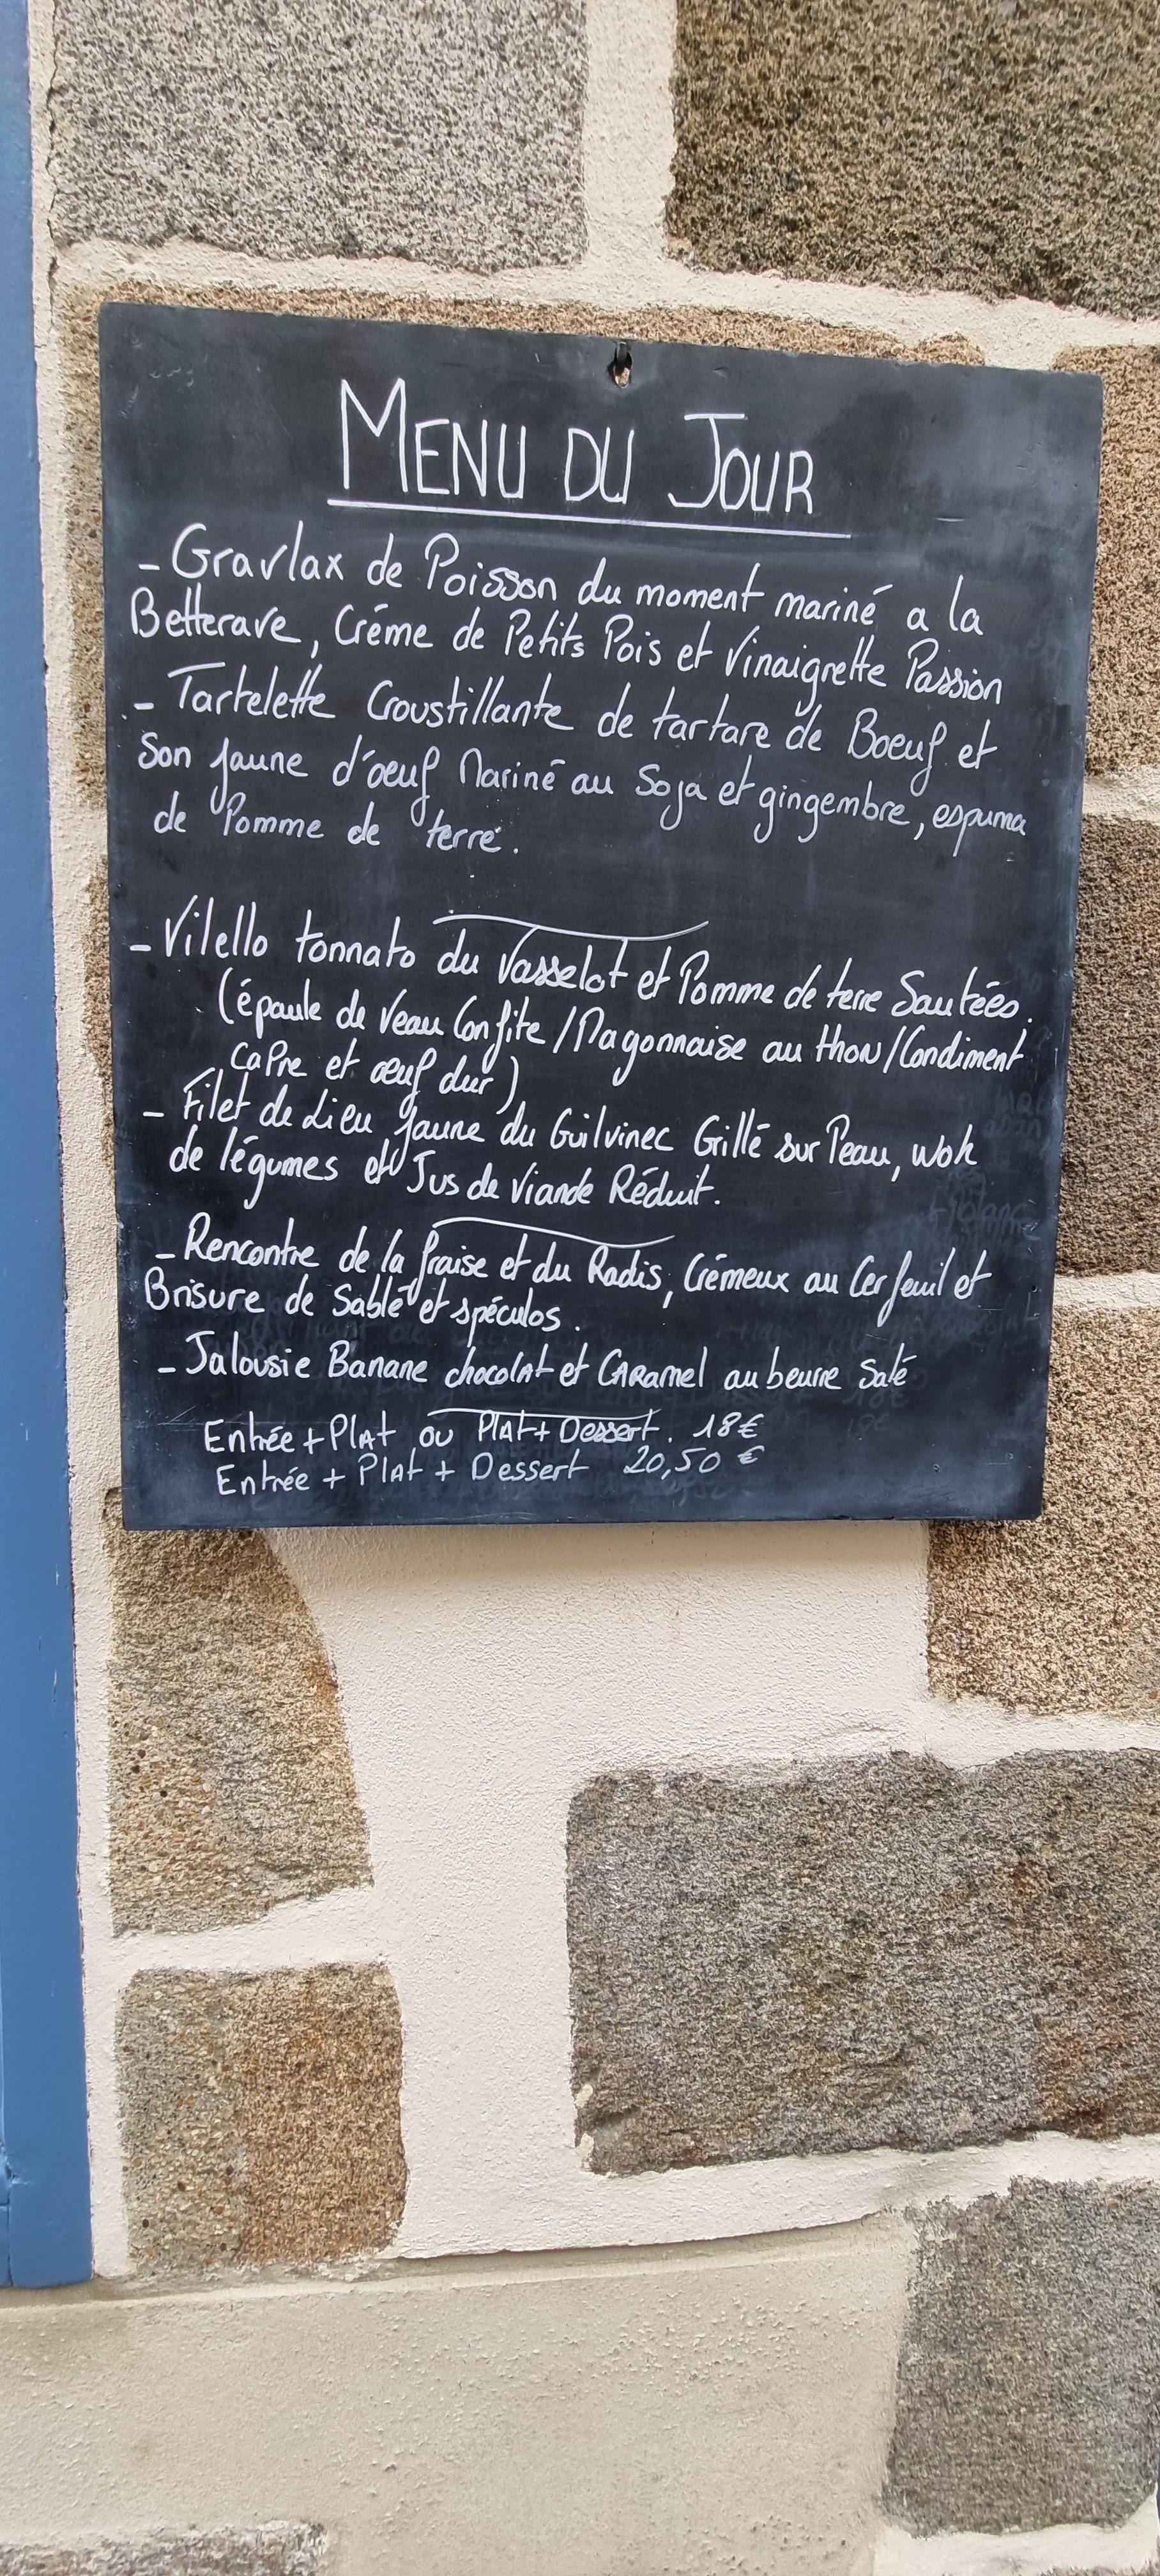 MENU DU JOUR
- Gravlax de Poisson du moment mariné a la
Betterave, Créme de Petits Pois et Vinaigrette Passion
- Tartelette Croustillante de tartare de Boeuf et
Son Jaune d'oeuf Mariné au Soja et gingembre, espuma
de Pomme de terre.
- Vilello tonnato du Vasselot et Pomme de terre Sautées.
(épaule de Veau Confite / Mayonnaise au thon / Condiment
Capre et œuf dur)
- Filet de Lieu Jaune du Guilvinec Grillé sur Peau, wok
de légumes et Jus de Viande Réduit.
- Rencontre de la fraise et du Radis, Crémeux au Cerfeuil et
Brisure de Sablé et spéculos.
- Jalousie Banane chocolat et CARamel au beurre Salé
Entrée + Plat ou Plat + Dessert. 18€
Entrée + Plat + Dessert 20,50 €